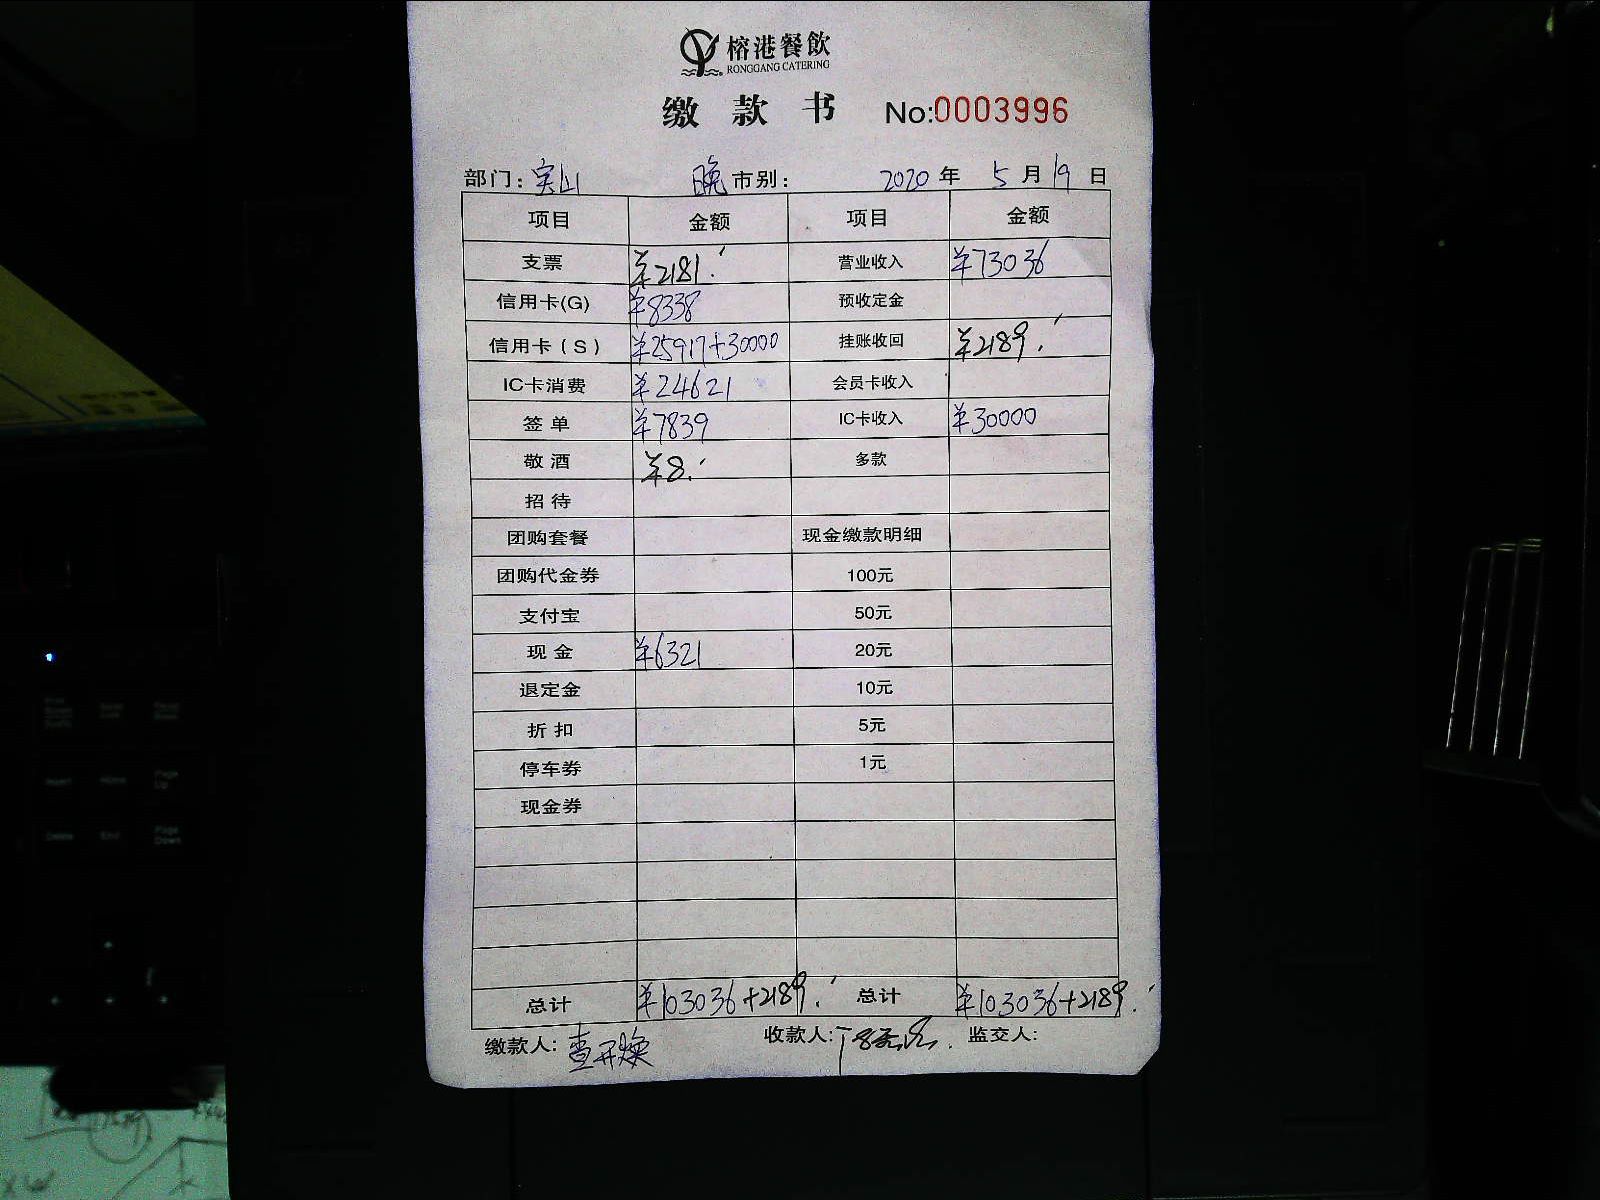 榕港餐飲
RONGGANG CATERING
缴款书 No:0003996
部门: 宝山 晚市别: 2020年5月19日
项目 金额 项目 金额
支票 ¥2181. 营业收入 ¥73036
信用卡(G) ¥8338 预收定金
信用卡(S) ¥25917+30000 挂账收回 ¥2189.
IC卡消费 ¥24621 会员卡收入
签单 ¥7839 IC卡收入 ¥30000
敬酒 ¥8. 多款
招待
团购套餐 现金缴款明细
团购代金券 100元
支付宝 50元
现金 ¥6321 20元
退定金 10元
折扣 5元
停车券 1元
现金券
总计 ¥103036+2189. 总计 ¥103036+2189.
缴款人: 查开焕 收款人: 监交人: